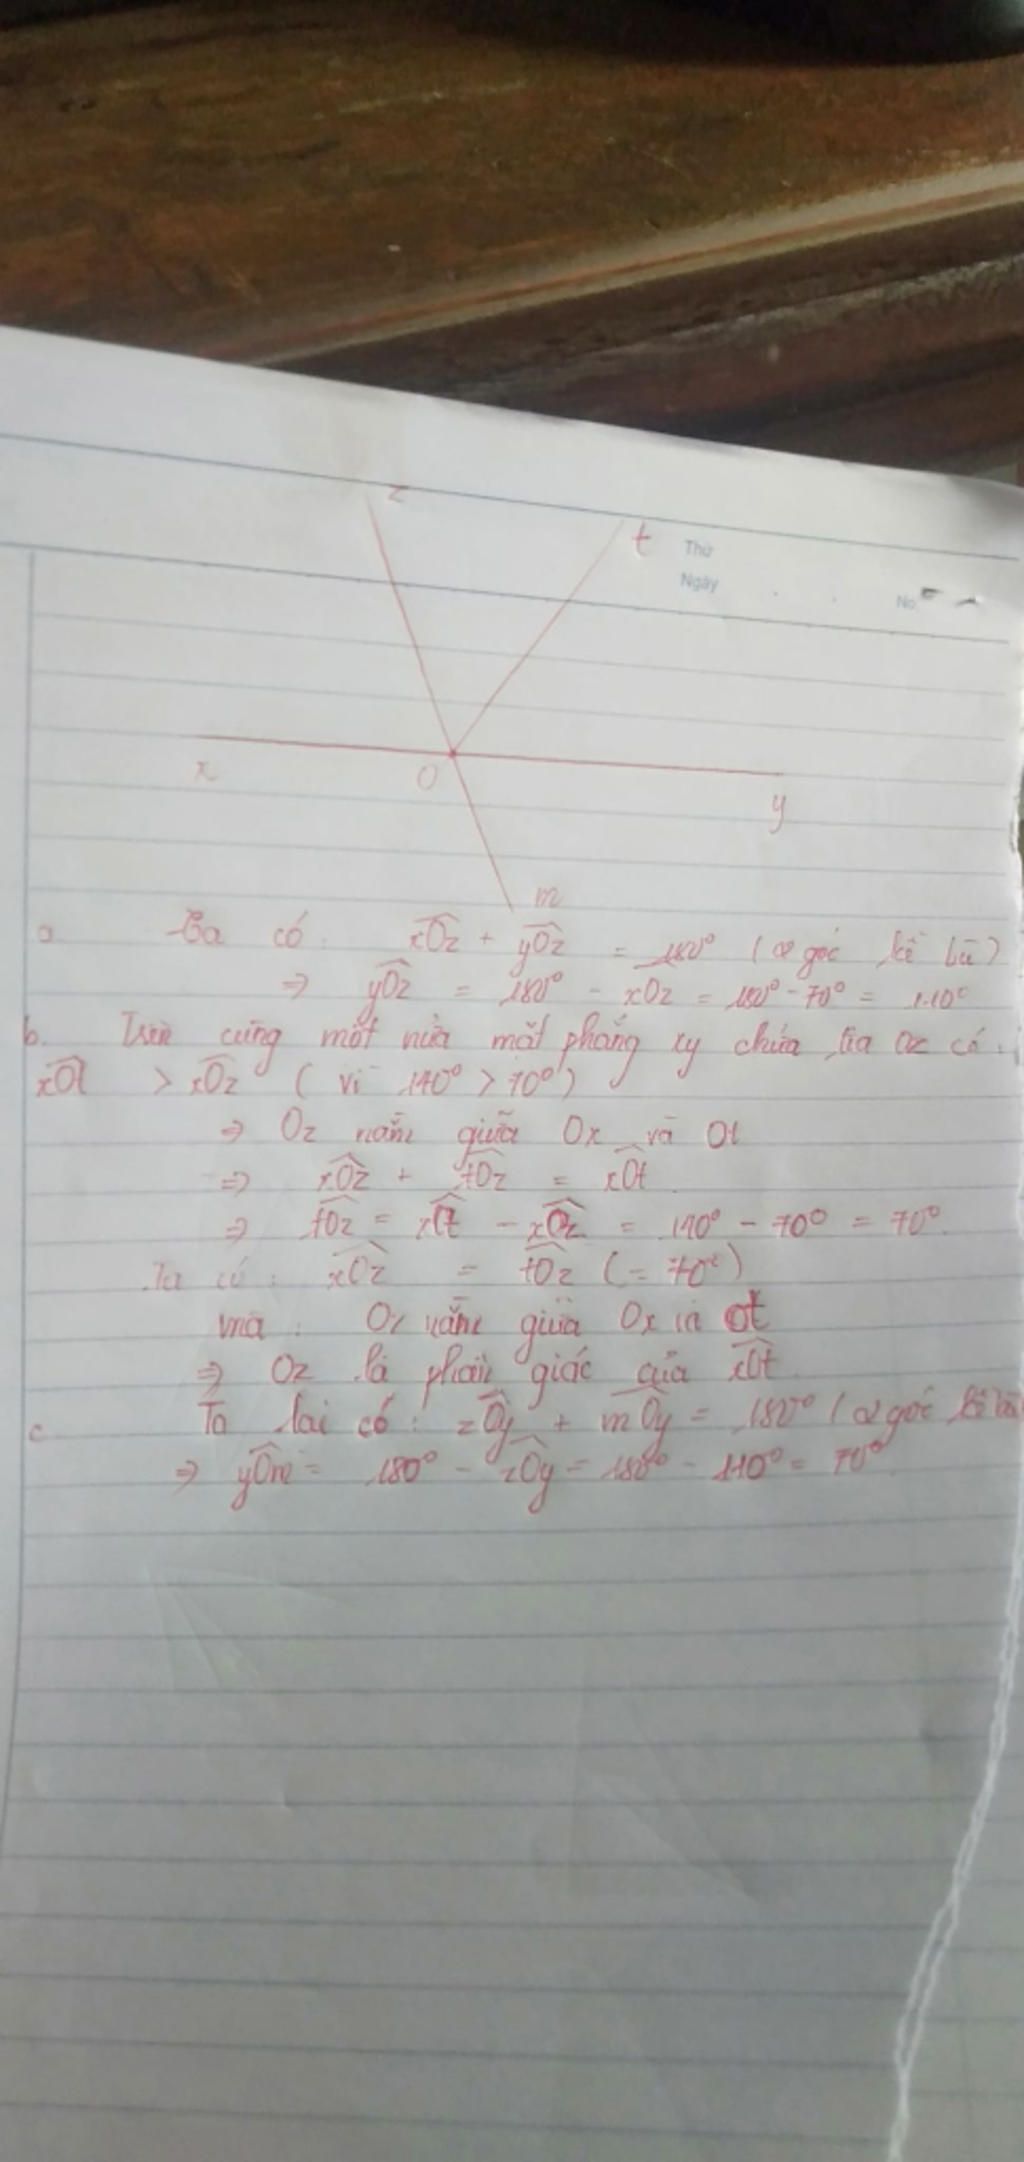 z
t
Thứ
Ngày
No.
x
O
y
m
a Ta có: xOz + yOz = 180° (2 góc kề bù)
⇒ yOz = 180° - xOz = 180° - 70° = 110°
b. Trên cùng một nửa mặt phẳng xy chứa tia Oz có:
xOt > xOz (vì 140° > 70°)
⇒ Oz nằm giữa Ox và Ot
⇒ xOz + tOz = xOt
⇒ tOz = xOt - xOz = 140° - 70° = 70°
Ta có: xOz = tOz (= 70°)
mà: Oz nằm giữa Ox và Ot
⇒ Oz là phân giác của xOt
c Ta lại có: zOy + mOy = 180° (2 góc kề bù
⇒ yOm = 180° - zOy = 180° - 110° = 70°